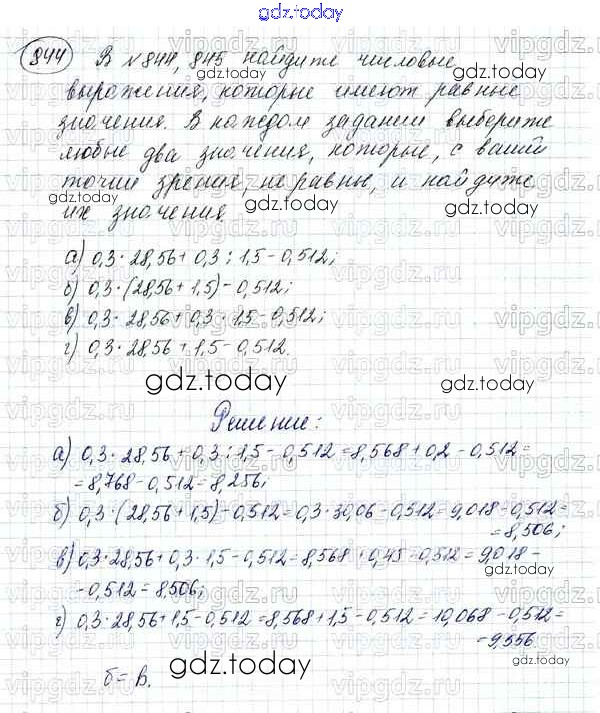 gdz.today
844 В №844, 845 найдите числовые
выражения, которые имеют равные
значения. В каждом задании выберите
любые два значения, которые, с вашей
точки зрения, не равны, и найдите
их значения
а) 0,3 · 28,56 + 0,3 : 1,5 - 0,512;
б) 0,3 · (28,56 + 1,5) - 0,512;
в) 0,3 · 28,56 + 0,3 · 1,5 - 0,512;
г) 0,3 · 28,56 + 1,5 - 0,512.
gdz.today gdz.today
Решение:
а) 0,3 · 28,56 + 0,3 : 1,5 - 0,512 = 8,568 + 0,2 - 0,512 =
= 8,768 - 0,512 = 8,256;
б) 0,3 · (28,56 + 1,5) - 0,512 = 0,3 · 30,06 - 0,512 = 9,018 - 0,512 =
= 8,506;
в) 0,3 · 28,56 + 0,3 · 1,5 - 0,512 = 8,568 + 0,45 - 0,512 = 9,018 -
- 0,512 = 8,506;
г) 0,3 · 28,56 + 1,5 - 0,512 = 8,568 + 1,5 - 0,512 = 10,068 - 0,512 =
= 9,556.
б = в. gdz.today